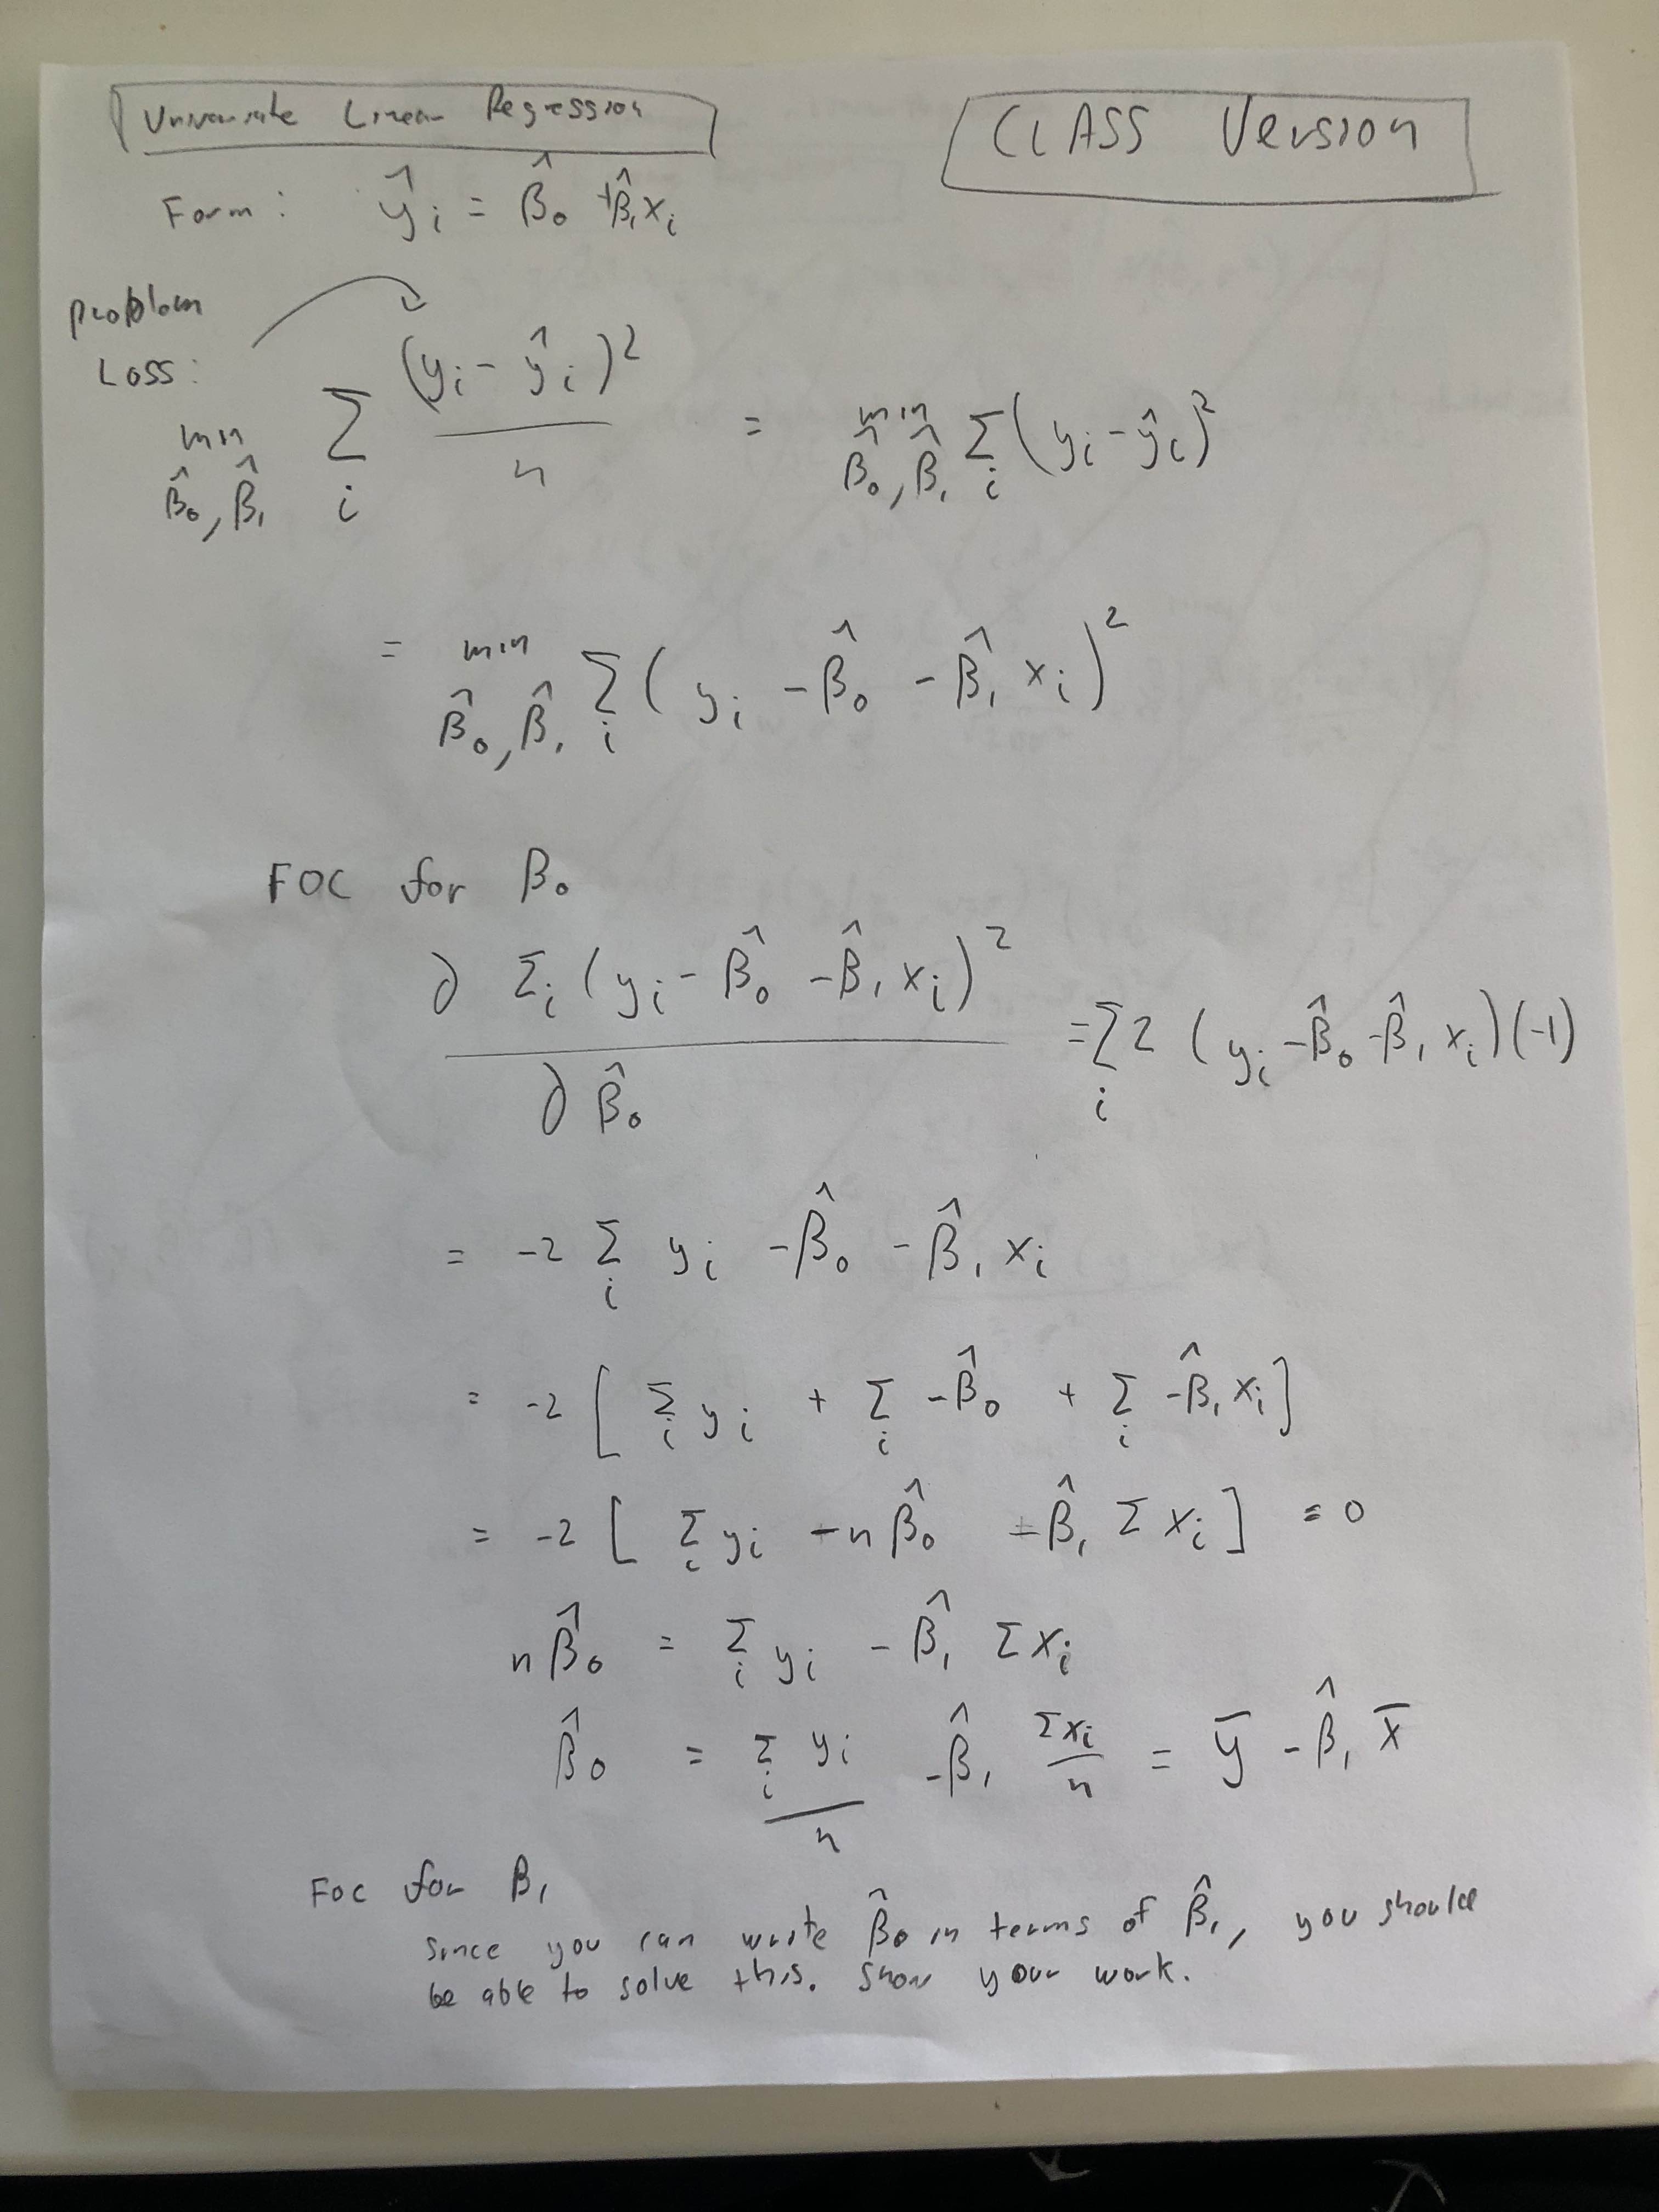 Univariate Linear Regression
CLASS Version
Form: ŷᵢ = β̂₀ + β̂₁xᵢ
problem
Loss:
min β̂₀, β̂₁ Σᵢ (yᵢ - ŷᵢ)² / n = min β̂₀, β̂₁ Σᵢ (yᵢ - ŷᵢ)²
= min β̂₀, β̂₁ Σᵢ (yᵢ - β̂₀ - β̂₁ xᵢ)²
FOC for β₀
∂ Σᵢ (yᵢ - β̂₀ - β̂₁ xᵢ)² / ∂ β̂₀ = Σᵢ 2 (yᵢ - β̂₀ - β̂₁ xᵢ)(-1)
= -2 Σᵢ yᵢ - β̂₀ - β̂₁ xᵢ
= -2 [ Σᵢ yᵢ + Σᵢ -β̂₀ + Σᵢ -β̂₁ xᵢ ]
= -2 [ Σᵢ yᵢ - n β̂₀ - β̂₁ Σ xᵢ ] = 0
n β̂₀ = Σᵢ yᵢ - β̂₁ Σ xᵢ
β̂₀ = Σᵢ yᵢ / n - β̂₁ Σxᵢ / n = ȳ - β̂₁ x̄
FOC for β₁
since you can write β̂₀ in terms of β̂₁, you should
be able to solve this. Show your work.